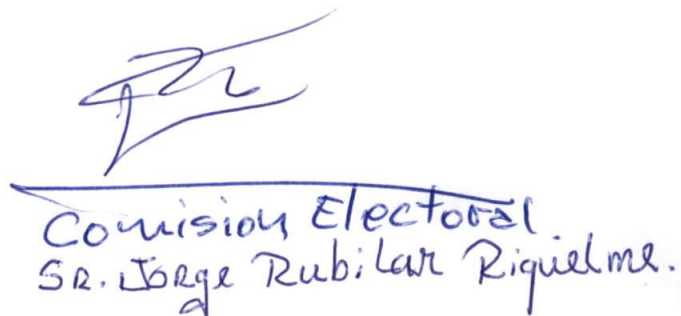 Comision Electoral
SR. Jorge Rubilar Riquelme.